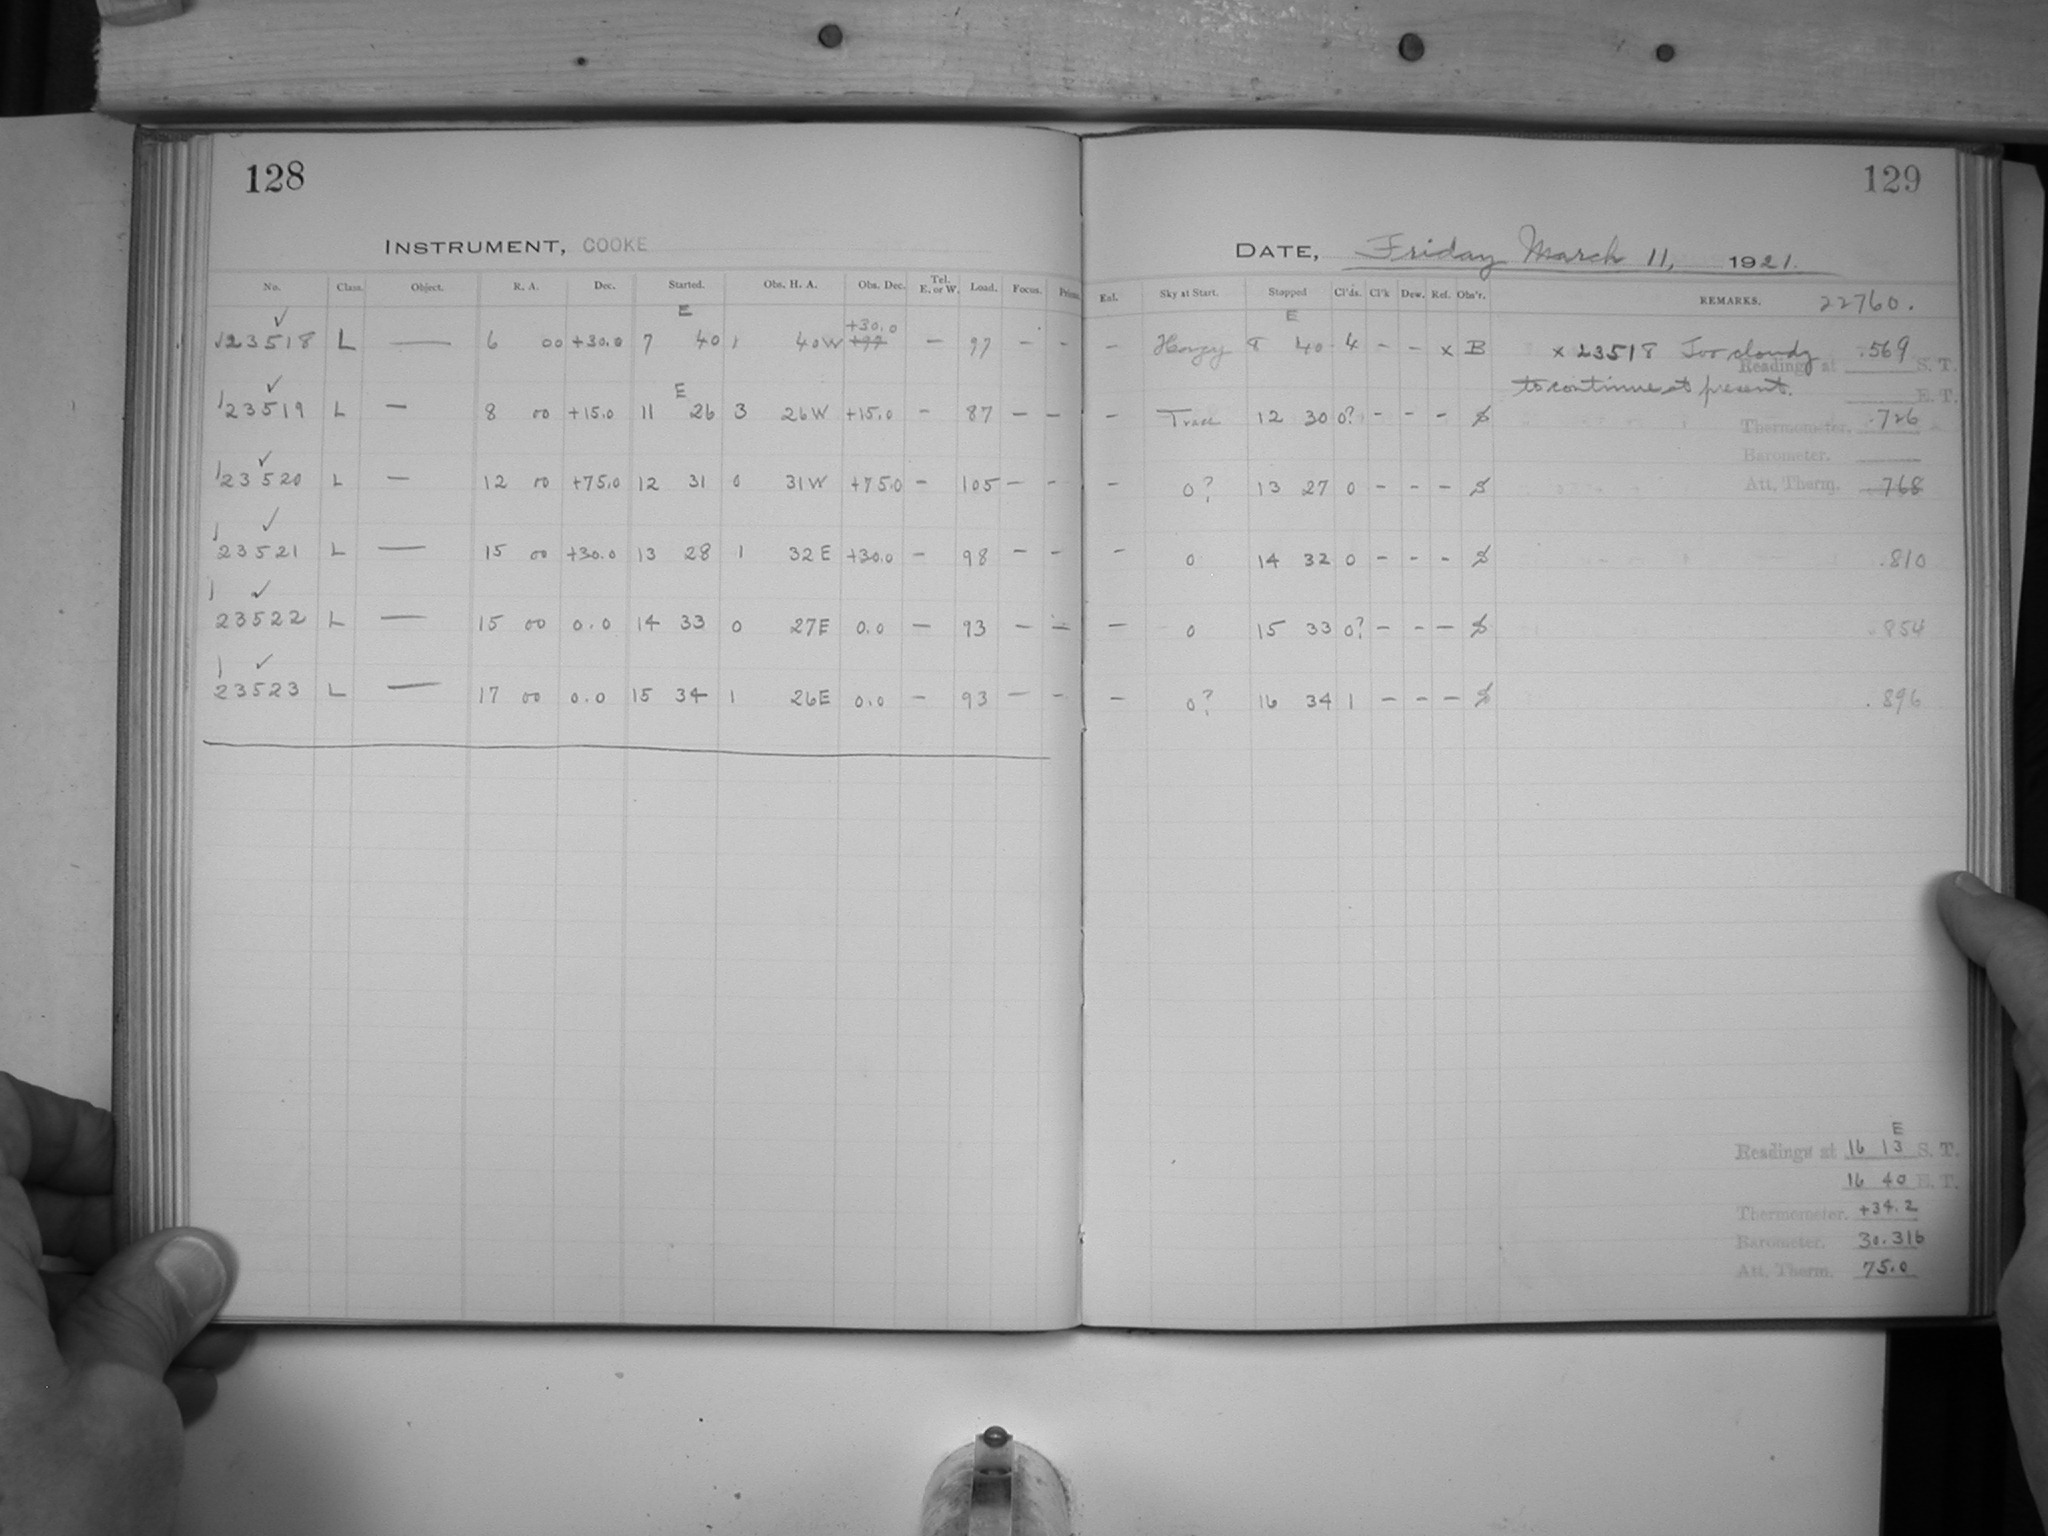 128
INSTRUMENT, COOKE
No. Class. Object. R. A. Dec. Started. Obs. H. A. Obs. Dec. Tel. E. or W. Load. Focus. Prism.
E
23518 L — 6 00 +30.0 7 40 1 40W +30.0 — 97 - -
E
23519 L — 8 00 +15.0 11 26 3 26W +15.0 - 87 - -
23520 L — 12 00 +75.0 12 31 0 31W +75.0 - 105 - -
23521 L — 15 00 +30.0 13 28 1 32E +30.0 - 98 - -
23522 L — 15 00 0.0 14 33 0 27E 0.0 - 93 - -
23523 L — 17 00 0.0 15 34 1 26E 0.0 - 93 - -
129
DATE, Friday March 11, 1921.
Eal. Sky at Start. Stopped Cl'ds. Cl'k Dew. Ref. Obs'r. REMARKS. 22760.
E
- Hazy 8 40 4 - - x B x 23518 Too cloudy .569
Readings at S. T.
to continue at present.
E. T.
- 12 30 0? - - - .726
Thermometer.
Barometer.
- 0? 13 27 0 - - - Att. Therm. .768
- 0 14 32 0 - - - .810
- 0 15 33 0? - - - .854
- 0? 16 34 1 - - - .896
E
Readings at 16 13 S. T.
16 40 E. T.
Thermometer. +34.2
Barometer. 30.316
Att. Therm. 75.0